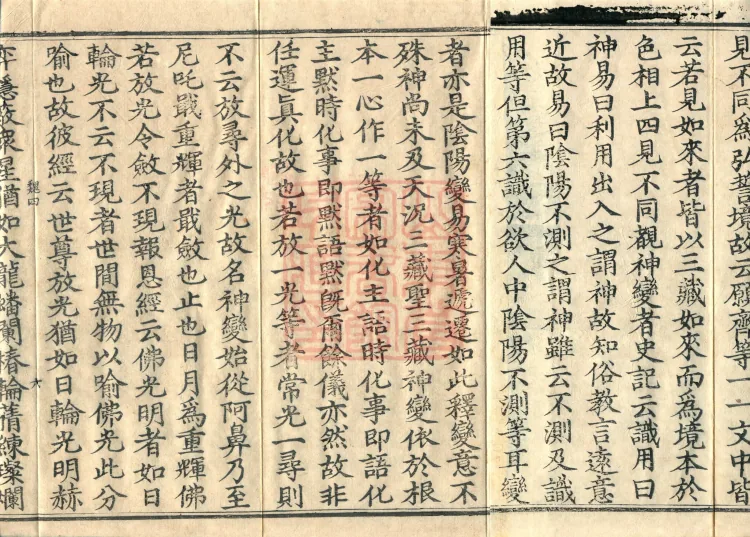 見不同為弘誓境故云願齊等一一文中皆
云若見如來者皆以三藏如來而為境本於
色相上四見不同覩神變者史記云識用曰
神易曰利用出入之謂神故知俗教言遠意
近故易曰陰陽不測之謂神雖云不測及識
用等但第六識於欲人中陰陽不測等耳變
者亦是陰陽變易寒暑遞遷如此釋變意不
殊神尚未及天況三藏聖三藏神變依於根
本一心作一等者如化主語時化事即語化
主默時化事即默語默既爾餘儀亦然故非
任運真化故也若放一光等者常光一尋則
不云放尋外之光故名神變始從阿鼻乃至
尼吒戢重輝者戢斂也止也日月為重輝佛
若放光令斂不現報恩經云佛光明者如日
輪光不云不現者世間無物以喻佛光此分
喻也故彼經云世尊放光猶如日輪光明赫
弈隱蔽衆星猶如大龍蟠闌椿輪蒨練璨爛